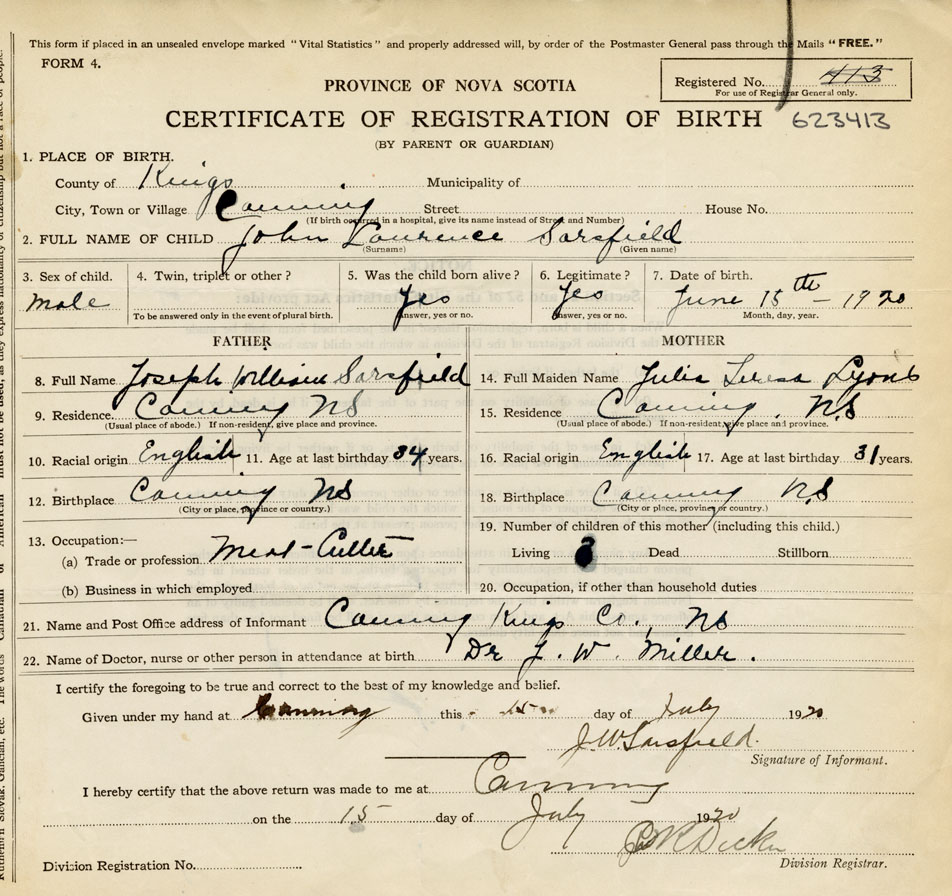 This form if placed in an unsealed envelope marked "Vital Statistics" and properly addressed will, by order of the Postmaster General pass through the Mails "FREE."
FORM 4.
Registered No. 413
For use of Registrar General only.
PROVINCE OF NOVA SCOTIA
CERTIFICATE OF REGISTRATION OF BIRTH 623413
(BY PARENT OR GUARDIAN)
1. PLACE OF BIRTH.
County of Kings Municipality of
City, Town or Village Canning Street House No.
(If birth occurred in a hospital, give its name instead of Street and Number)
2. FULL NAME OF CHILD John Lawrence Sarsfield
(Surname) (Given name)
3. Sex of child. 4. Twin, triplet or other? 5. Was the child born alive? 6. Legitimate? 7. Date of birth.
male yes yes June 15th - 1920
To be answered only in the event of plural birth. Answer, yes or no. Answer, yes or no. Month, day, year.
FATHER MOTHER
8. Full Name Joseph William Sarsfield 14. Full Maiden Name Julia Teresa Lyons
9. Residence Canning NS 15. Residence Canning, N.S
(Usual place of abode.) If non-resident, give place and province. (Usual place of abode.) If non-resident, give place and province.
10. Racial origin English 11. Age at last birthday 34 years. 16. Racial origin English 17. Age at last birthday 31 years.
12. Birthplace Canning NS 18. Birthplace Canning N.S
(City or place, province or country.) (City or place, province or country.)
19. Number of children of this mother (including this child.)
13. Occupation:—
(a) Trade or profession Meat-Cutter Living Dead Stillborn
(b) Business in which employed 20. Occupation, if other than household duties
21. Name and Post Office address of Informant Canning Kings Co., NS
22. Name of Doctor, nurse or other person in attendance at birth Dr J. W. Miller.
I certify the foregoing to be true and correct to the best of my knowledge and belief.
Given under my hand at Canning this 15 day of July 1920
J.W. Sarsfield.
Signature of Informant.
I hereby certify that the above return was made to me at Canning
on the 15 day of July 1920
Decker
Division Registration No. Division Registrar.